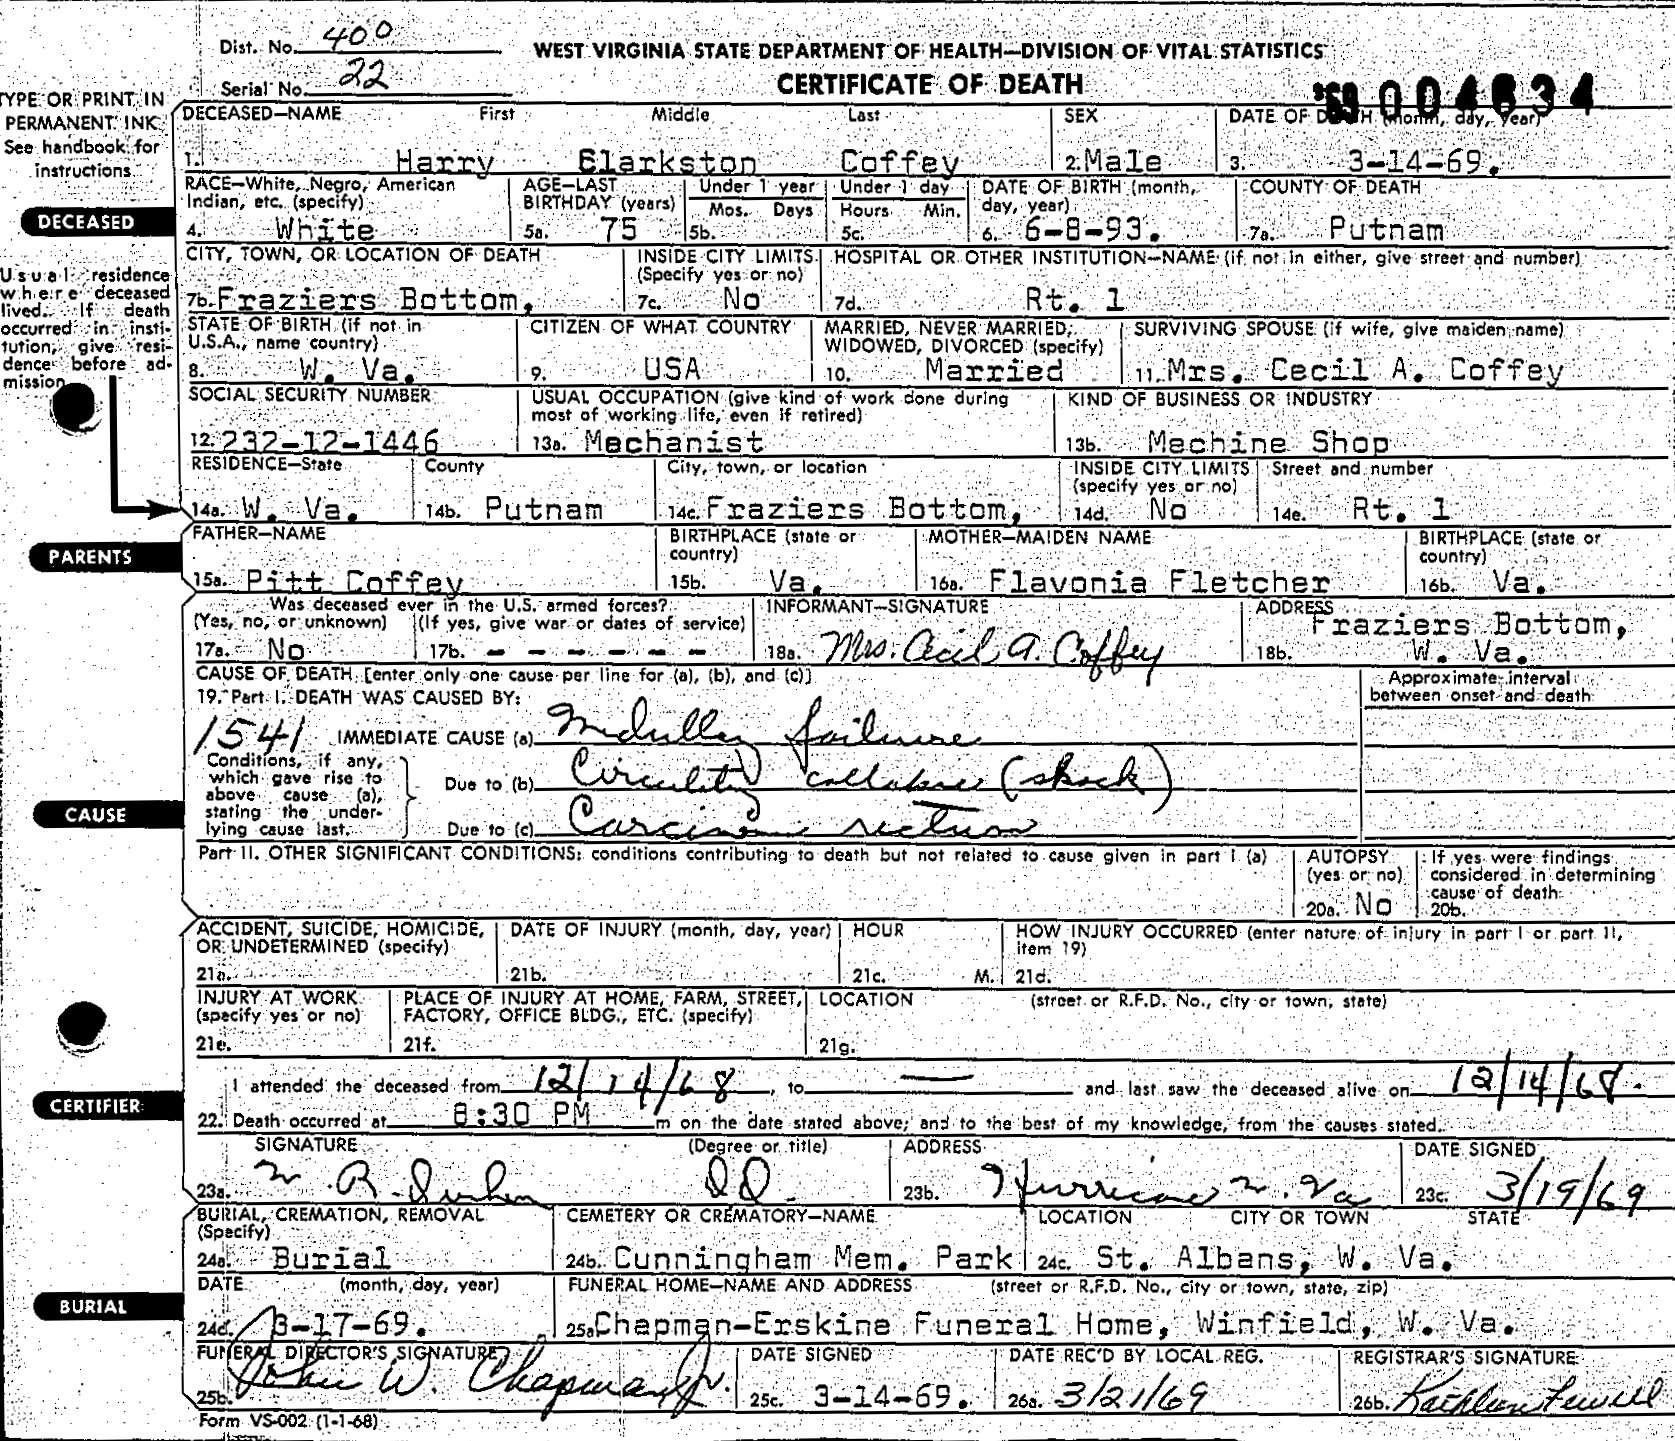 Dist. No. 400
WEST VIRGINIA STATE DEPARTMENT OF HEALTH—DIVISION OF VITAL STATISTICS
Serial No. 22
CERTIFICATE OF DEATH
'69 004634
TYPE OR PRINT IN
PERMANENT INK
See handbook for
instructions
DECEASED—NAME First Middle Last SEX DATE OF DEATH (month, day, year)
1. Harry Clarkston Coffey 2. Male 3. 3-14-69.
RACE—White, Negro, American Indian, etc. (specify) AGE—LAST BIRTHDAY (years) Under 1 year Under 1 day DATE OF BIRTH (month, day, year) COUNTY OF DEATH
Mos. Days Hours Min.
DECEASED
4. White 5a. 75 5b. 5c. 6. 6-8-93. 7a. Putnam
CITY, TOWN, OR LOCATION OF DEATH INSIDE CITY LIMITS (Specify yes or no) HOSPITAL OR OTHER INSTITUTION—NAME (if not in either, give street and number)
7b. Fraziers Bottom, 7c. No 7d. Rt. 1
Usual residence
where deceased
lived. If death
occurred in insti-
tution, give resi-
dence before ad-
mission
STATE OF BIRTH (if not in U.S.A., name country) CITIZEN OF WHAT COUNTRY MARRIED, NEVER MARRIED, WIDOWED, DIVORCED (specify) SURVIVING SPOUSE (if wife, give maiden name)
8. W. Va. 9. USA 10. Married 11. Mrs. Cecil A. Coffey
SOCIAL SECURITY NUMBER USUAL OCCUPATION (give kind of work done during most of working life, even if retired) KIND OF BUSINESS OR INDUSTRY
12. 232-12-1446 13a. Mechanist 13b. Mechine Shop
RESIDENCE—State County City, town, or location INSIDE CITY LIMITS (specify yes or no) Street and number
14a. W. Va. 14b. Putnam 14c. Fraziers Bottom, 14d. No 14e. Rt. 1
PARENTS
FATHER—NAME BIRTHPLACE (state or country) MOTHER—MAIDEN NAME BIRTHPLACE (state or country)
15a. Pitt Coffey 15b. Va. 16a. Flavonia Fletcher 16b. Va.
Was deceased ever in the U.S. armed forces? INFORMANT—SIGNATURE ADDRESS
(Yes, no, or unknown) (If yes, give war or dates of service) Fraziers Bottom,
17a. No 17b. - - - - - - 18a. Mrs. Cecil A. Coffey 18b. W. Va.
CAUSE OF DEATH [enter only one cause per line for (a), (b), and (c)] Approximate interval between onset and death
19. Part I. DEATH WAS CAUSED BY:
1541 IMMEDIATE CAUSE (a) Medullary failure
CAUSE
Conditions, if any,
which gave rise to
above cause (a),
stating the under-
lying cause last.
Due to (b) Circulatory collapse (shock)
Due to (c) Carcinoma rectum
Part II. OTHER SIGNIFICANT CONDITIONS: conditions contributing to death but not related to cause given in part I (a) AUTOPSY (yes or no) If yes were findings considered in determining cause of death
20a. No 20b.
ACCIDENT, SUICIDE, HOMICIDE, OR UNDETERMINED (specify) DATE OF INJURY (month, day, year) HOUR HOW INJURY OCCURRED (enter nature of injury in part I or part II, item 19)
21a. 21b. 21c. M. 21d.
INJURY AT WORK (specify yes or no) PLACE OF INJURY AT HOME, FARM, STREET, FACTORY, OFFICE BLDG., ETC. (specify) LOCATION (street or R.F.D. No., city or town, state)
21e. 21f. 21g.
CERTIFIER
I attended the deceased from 12/14/68, to — and last saw the deceased alive on 12/14/68.
22. Death occurred at 8:30 PM m on the date stated above; and to the best of my knowledge, from the causes stated.
SIGNATURE (Degree or title) ADDRESS DATE SIGNED
23a. W. R. DO. 23b. Hurricane W. Va 23c. 3/19/69
BURIAL, CREMATION, REMOVAL (Specify) CEMETERY OR CREMATORY—NAME LOCATION CITY OR TOWN STATE
24a. Burial 24b. Cunningham Mem. Park 24c. St. Albans, W. Va.
BURIAL
DATE (month, day, year) FUNERAL HOME—NAME AND ADDRESS (street or R.F.D. No., city or town, state, zip)
24d. 3-17-69. 25a Chapman-Erskine Funeral Home, Winfield, W. Va.
FUNERAL DIRECTOR'S SIGNATURE DATE SIGNED DATE REC'D BY LOCAL REG. REGISTRAR'S SIGNATURE
25b. John W. Chapman Jr. 25c. 3-14-69. 26a. 3/21/69 26b. Kathleen
Form VS-002 (1-1-68)